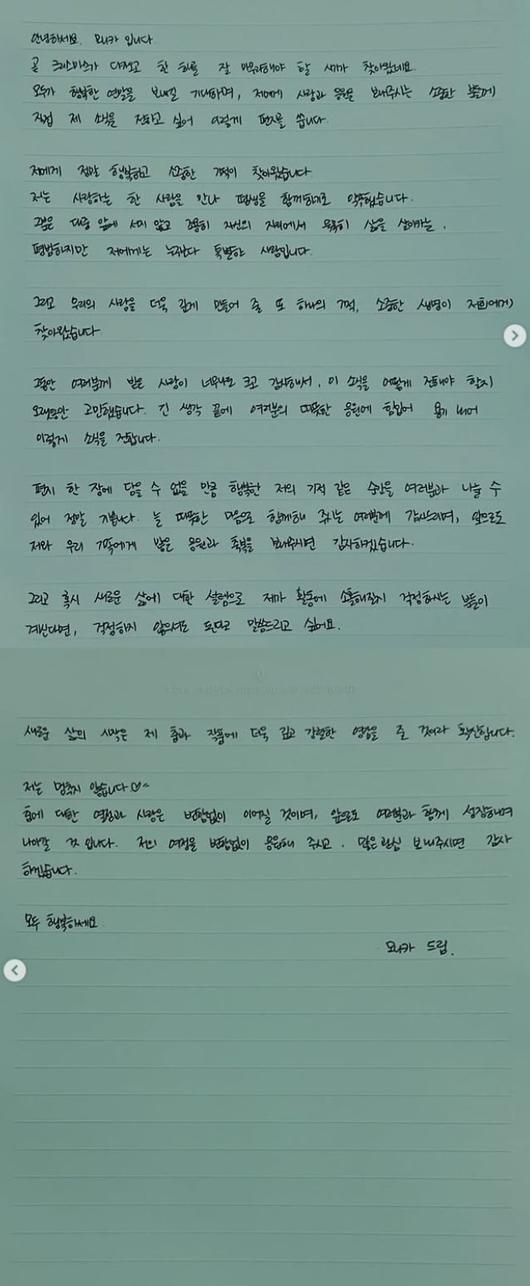 안녕하세요. 모니카 입니다.
곧 크리스마스가 다가오고 한 해를 잘 마무리해야 할 시기가 찾아왔네요.
모두가 행복한 연말을 보내길 기대하며, 저에게 사랑과 응원을 보내주시는 소중한 분들께
직접 제 소식을 전하고 싶어 이렇게 편지를 씁니다.
저에게 정말 행복하고 소중한 기적이 찾아왔습니다.
저는 사랑하는 한 사람을 만나 평생을 함께하기로 약속했습니다.
그분은 대중 앞에 서지 않고 조용히 자신의 자리에서 묵묵히 삶을 살아가는,
평범하지만 저에게는 누구보다 특별한 사람입니다.
그리고 우리의 사랑을 더욱 깊게 만들어 줄 또 하나의 기적, 소중한 생명이 저희에게
찾아왔습니다.
그동안 여러분께 받은 사랑이 너무나도 크고 감사해서, 이 소식을 어떻게 전해야 할지
오랫동안 고민했습니다. 긴 생각 끝에 여러분의 따뜻한 응원에 힘입어 용기 내어
이렇게 소식을 전합니다.
편지 한 장에 담을 수 없을 만큼 행복한 저의 기적 같은 순간을 여러분과 나눌 수
있어 정말 기쁩니다. 늘 따뜻한 마음으로 함께해 주시는 여러분께 감사드리며, 앞으로도
저와 우리 가족에게 많은 응원과 축복을 보내주시면 감사하겠습니다.
그리고 혹시 새로운 삶에 대한 설렘으로 제가 활동에 소홀해질지 걱정하시는 분들이
계신다면, 걱정하지 않으셔도 된다고 말씀드리고 싶어요.
새로운 삶의 시작은 제 춤과 작품에 더욱 깊고 강렬한 영감을 줄 것이라 확신합니다.
저는 멈추지 않습니다♡^^
춤에 대한 열정과 사랑은 변함없이 이어질 것이며, 앞으로도 여러분과 함께 성장하며
나아갈 것 입니다. 저의 여정을 변함없이 응원해 주시고, 많은 관심 보내주시면 감사
하겠습니다.
모두 행복하세요.
모니카 드림.